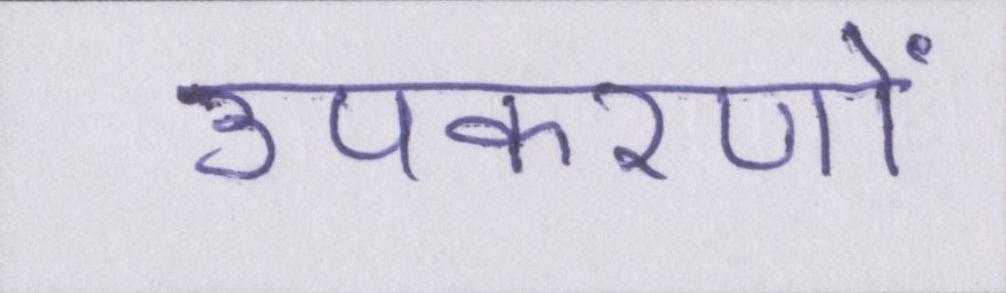 उपकरणों